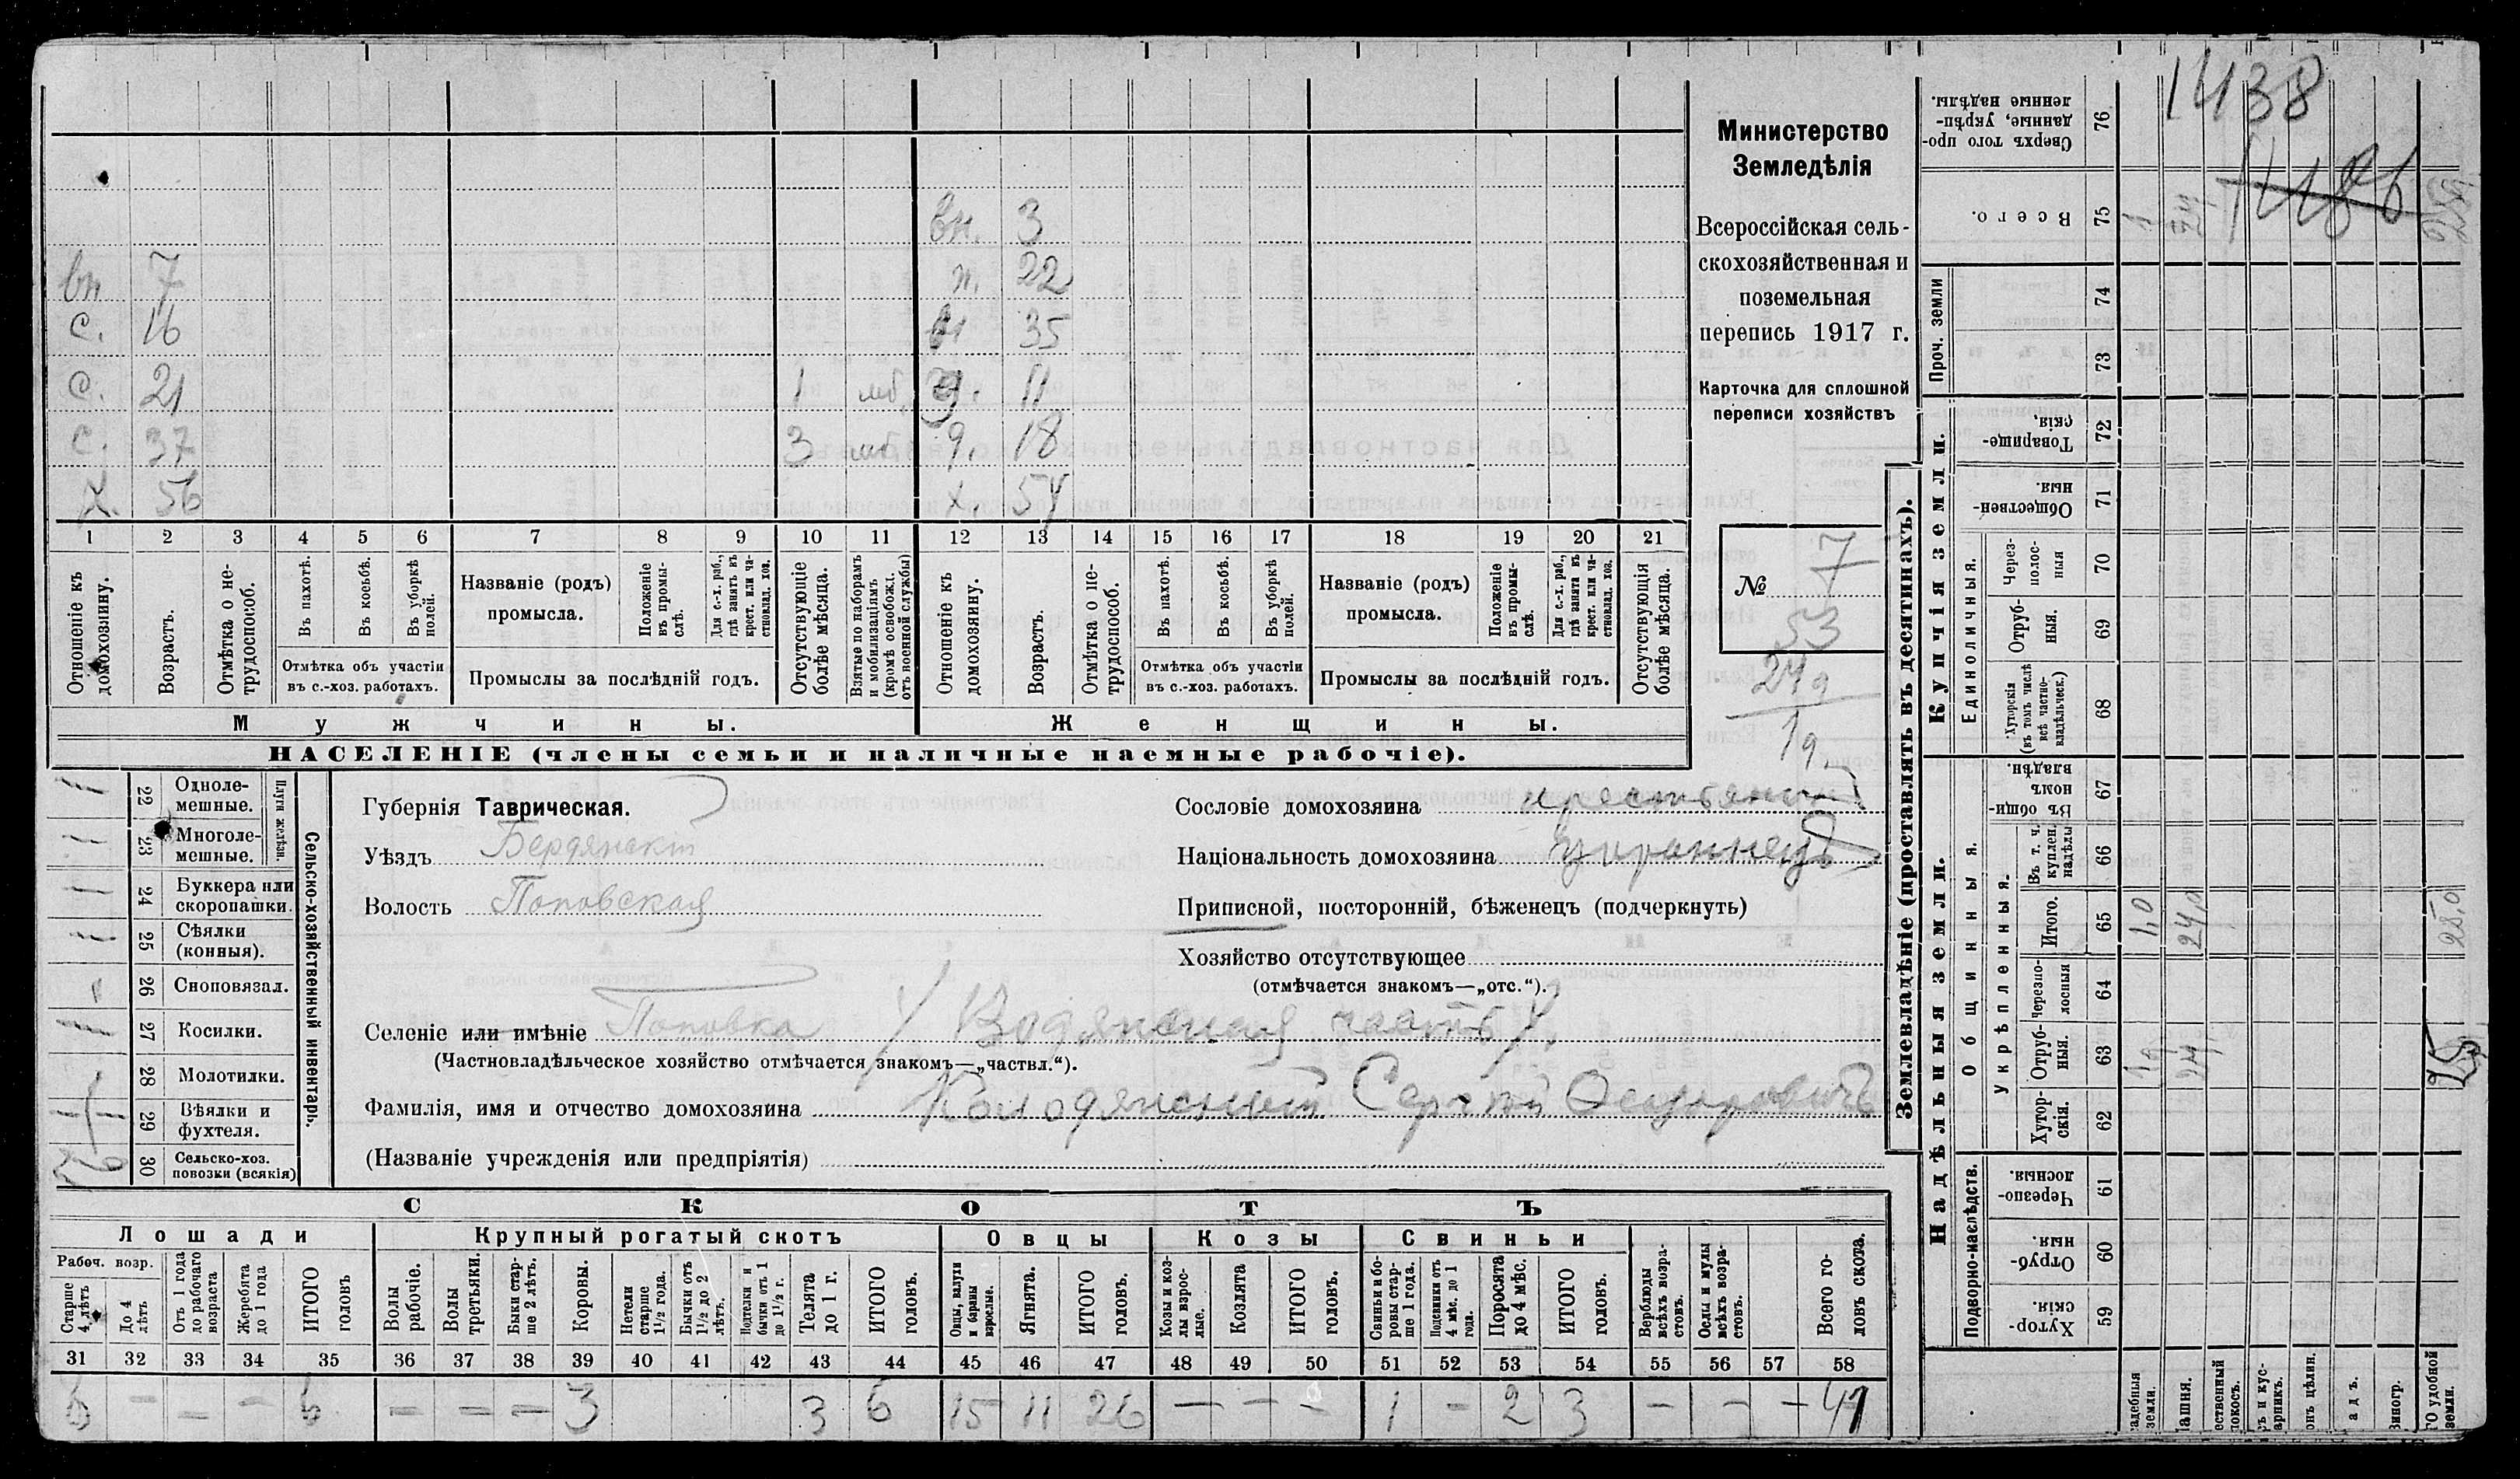 вн. 3
вн 7 ж. 22
с. 16 35
с. 21 1 моб. 11
с. 37 3 моб 9. 18
х. 56 х. 54
1 2 3 4 5 6 7 8 9 10 11 12 13 14 15 16 17 18 19 20 21
Отношеніе къ домохозяину.
Возрастъ.
Отмѣтка о не-
трудоспособ.
Въ пахотѣ.
Въ косьбѣ.
Въ уборкѣ
полей.
Отмѣтка объ участіи
въ с.-хоз. работахъ.
Названіе (родъ)
промысла.
Положеніе
въ промы-
слѣ.
Для с.-х. раб.,
гдѣ занятъ въ
крест. или ча-
стновлад. хоз.
Промыслы за послѣдній годъ.
Отсутствующіе
болѣе мѣсяца.
Взятые по наборамъ
и мобилизаціямъ
(кромѣ освобожд.
отъ военной службы)
Отношеніе къ
домохозяину.
Возрастъ.
Отмѣтка о не-
трудоспособ.
Въ пахотѣ.
Въ косьбѣ.
Въ уборкѣ
полей.
Отмѣтка объ участіи
въ с.-хоз. работахъ.
Названіе (родъ)
промысла.
Положеніе
въ промы-
слѣ.
Для с.-х. раб.,
гдѣ занята въ
крест. или ча-
стновлад. хоз.
Промыслы за послѣдній годъ.
Отсутствующія
болѣе мѣсяца.
Мужчины.
Женщины.
НАСЕЛЕНІЕ (члены семьи и наличные наемные рабочіе).
Министерство
Земледѣлія
Всероссійская сель-
скохозяйственная и
поземельная
перепись 1917 г.
Карточка для сплошной
переписи хозяйствъ
№ 7
53
Плуги желѣзн.
22 Однолe-
мешные.
23 Многоле-
мешные.
24 Буккера или
скоропашки.
25 Сѣялки
(конныя).
26 Сноповязал.
27 Косилки.
28 Молотилки.
29 Вѣялки и
фухтеля.
30 Сельско-хоз.
повозки (всякія)
Сельско-хозяйственный инвентарь.
Губернія Таврическая.
Уѣздъ Бердянскій
Волость Поповская
Сословіе домохозяина крестьянинъ
Національность домохозяина Украинецъ
Приписной, посторонній, бѣженецъ (подчеркнуть)
Хозяйство отсутствующее
(отмѣчается знакомъ—„отс.“).
Селеніе или имѣніе Поповка / Водянская часть /
(Частновладѣльческое хозяйство отмѣчается знакомъ—„частвл.“).
Фамилія, имя и отчество домохозяина Колодянскій Сергѣй Федоровичъ
(Названіе учрежденія или предпріятія)
СКОТЪ
Лошади
Крупный рогатый скотъ
Овцы
Козы
Свиньи
Рабоч. возр.
Старше
4 лѣтъ
До 4
лѣтъ
Отъ 1 года
до рабочаго
возраста
Жеребята
до 1 года
ИТОГО
головъ
Волы
рабочіе.
Волы
третьяки.
Быки стар-
ше 2 лѣтъ.
Коровы.
Нетели
старше
1½ года.
Бычки отъ
1½ до 2
лѣтъ.
Подтелки и
бычки отъ 1
до 1½ г.
Телята
до 1 г.
ИТОГО
головъ.
Овцы, валухи
и бараны
взрослые.
Ягнята.
ИТОГО
головъ.
Козы и коз-
лы взрос-
лые.
Козлята
ИТОГО
головъ.
Свиньи и бо-
ровы стар-
ше 1 года.
Подсвинки отъ
4 мѣс. до 1
года.
Поросята
до 4 мѣс.
ИТОГО
головъ.
Верблюды
всѣхъ возра-
стовъ.
Ослы и мулы
всѣхъ возра-
стовъ.
Всего го-
ловъ скота.
31 32 33 34 35 36 37 38 39 40 41 42 43 44 45 46 47 48 49 50 51 52 53 54 55 56 57 58
6 — — — 6 — — — 3 3 6 15 11 26 — — — 1 — 2 3 — — — 41
1438
Землевладѣніе (проставлять въ десятинахъ).
Сверхъ того про-
данные, укрѣп-
ленные надѣлы.
76
Всего.
75
Проч. земли
74
73
Купчія земли.
Товарище-
скія.
72
Обществен-
ныя.
71
Единоличныя.
Через-
полос-
ныя
70
Отруб-
ныя.
69
Хуторскія
(въ томъ числѣ
всѣ частно-
владѣльческ.)
68
Надѣльныя земли.
Общинныя.
Въ общин-
номъ
владѣн.
67
Укрѣпленныя.
Въ т. ч.
куплен.
надѣлы
66
Итого.
65 1,0 24,0 25,0
Черезпо-
лосныя
64
Отруб-
ныя.
63
Хутор-
скія.
62
Подворно-наслѣдств.
Черезпо-
лосныя.
61
Отруб-
ныя.
60
Хутор-
скія.
59
адебныя
земли.
ашня.
ественный
покосъ.
ръ и кус-
арникъ.
онъ цѣлин.
адъ.
виногр.
ГО удобной
земли.